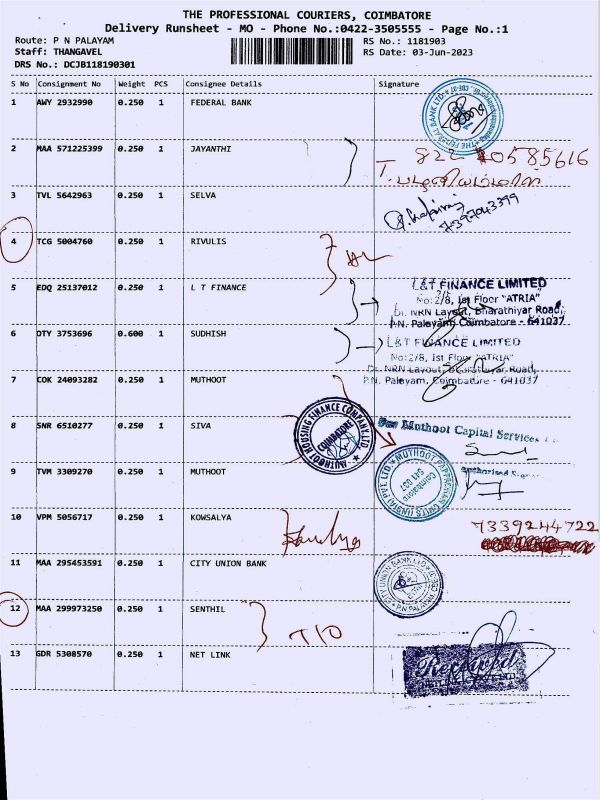 THE PROFESSIONAL COURIERS, COIMBATORE
Delivery Runsheet - MO - Phone No.:0422-3505555 - Page No.:1
Route: P N PALAYAM
Staff: THANGAVEL
DRS No.: DCJB118190301
RS No.: 1181903
RS Date: 03-Jun-2023
S No Consignment No Weight PCS Consignee Details Signature
1 AWY 2932990 0.250 1 FEDERAL BANK
2 MAA 571225399 0.250 1 JAYANTHI
3 TVL 5642963 0.250 1 SELVA
7397043399
4 TCG 5004760 0.250 1 RIVULIS
5 EDQ 25137012 0.250 1 L T FINANCE
L&T FINANCE LIMITED
No:2/8, Ist Floor "ATRIA"
Dr. NRN Layout, Bharathiyar Road,
P.N. Palayam, Coimbatore - 641037
6 OTY 3753696 0.600 1 SUDHISH
L&T FINANCE LIMITED
No:2/8, Ist Floor "ATRIA"
Dr. NRN Layout, Bharathiyar Road,
P.N. Palayam, Coimbatore - 641037
7 COK 24093282 0.250 1 MUTHOOT
MUTHOOT HOUSING FINANCE COMPANY LTD.
COIMBATORE
8 SNR 6510277 0.250 1 SIVA
For Muthoot Capital Services
9 TVM 3309270 0.250 1 MUTHOOT
MUTHOOT PAPPACHAN CHITS (INDIA) PVT LTD
Coimbatore
641 037
10 VPM 5056717 0.250 1 KOWSALYA
7339244722
11 MAA 295453591 0.250 1 CITY UNION BANK
CITY UNION BANK LTD
P.N PALAYAM
12 MAA 299973250 0.250 1 SENTHIL
13 GDR 5308570 0.250 1 NET LINK
Received